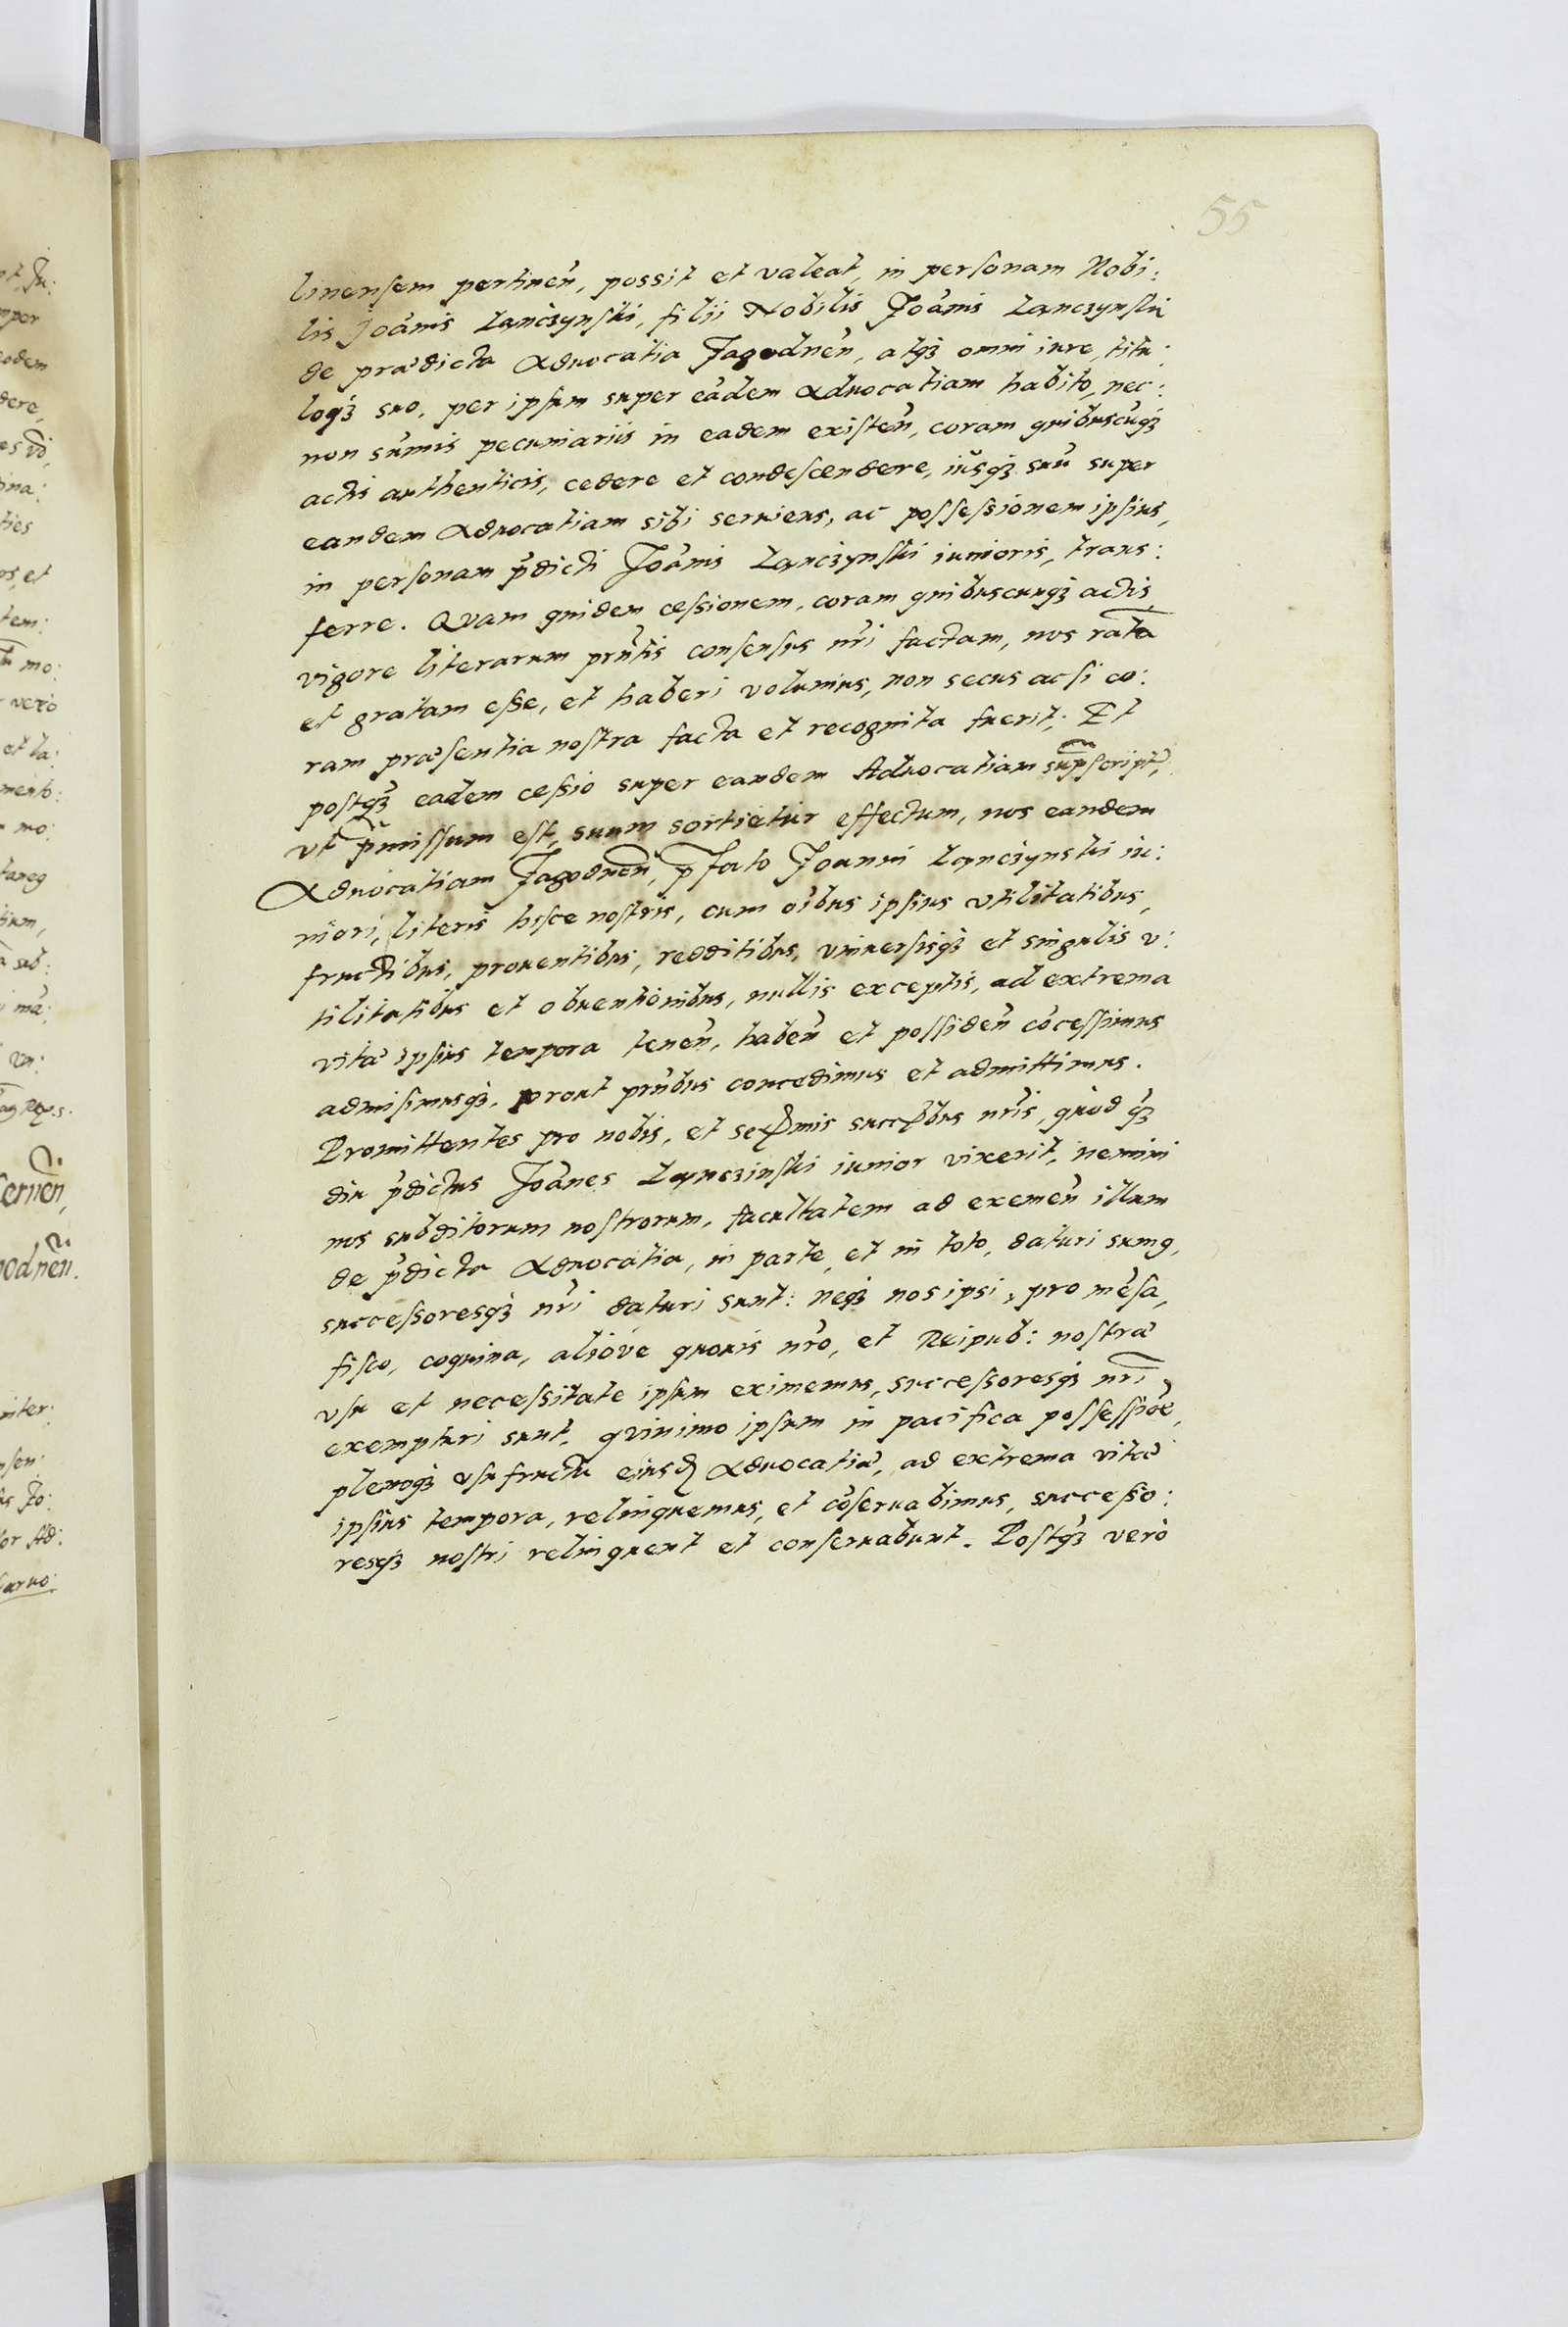 55
linensem pertinen̄, possit et valeat, in personam Nobi:
lis Joānis Lanczynski, filii Nobilis Joānis Lanczynski
de prædicta Aduocatia Jagodnen̄, atqꝫ omni iure, titu:
loqꝫ suo, per ipsum super eādem Aduocatiam habito, nec:
non sūmis pecuniariis in eadem existen̄, coram quibuscūqꝫ
actis authenticis, cedere et condescendere, iusqꝫ suū super
eandem Aduocatiam sibi seruiens, ac possessionem ipsius,
in personam p̄dicti Joānis Lanczynski iunioris, trans:
ferre. Quam quidem cessionem, coram quibuscunqꝫ actis,
vigore literarum prn̄tis consensus nr̄i factam, nos ratā
et gratam esse, et haberi volumus, non secus ac si co:
ram præsentia nostra facta et recognita fuerit. Et
postqꝫ eadem cessio super eandem Aduocatiam suprascript̄,
vt p̄missum est, suum sortietur effectum, nos eandem
Aduocatiam Jagodnen̄, p̄fato Joanni Lanczynski iu:
niori, literis hisce nostris, cum oībus ipsius vtilitatibus,
fructibus, prouentibus, redditibus, vniuersisqꝫ et singulis v:
tilitatibus et obuentionibus, nullis exceptis, ad extrema
vitæ ipsius tempora tenen̄, haben̄ et possiden̄ cōcessimus
admisimusqꝫ, prout prn̄tibus concedimus et admittimus.
Promittentes pro nobis, et Serᵐⁱˢ succr̄ibus nr̄is, quod qꝫ
diu p̄dictus Joānes Lanczinski iunior vixerit, nemini
nos subditorum nostrorum, facultatem ad eximen̄ illum
de p̄dicta Aduocatia, in parte, et in toto, daturi sumꝰ,
successoresqꝫ nr̄i daturi sunt: neqꝫ nos ipsi, pro mēsa,
fisco, coquina, alióve quouis nr̄o, et Reipub: nostræ
vsu et necessitate ipsum eximemus, successoresqꝫ nr̄i
exempturi sunt, quinimo ipsum in pacifica possessiōe,
plenoqꝫ vsufructu eiusd̄ Aduocatiæ, ad extrema vitæ
ipsius tempora, relinquemus, et cōseruabimus, successo:
resqꝫ nostri relinquent et conseruabunt. Postqꝫ verò